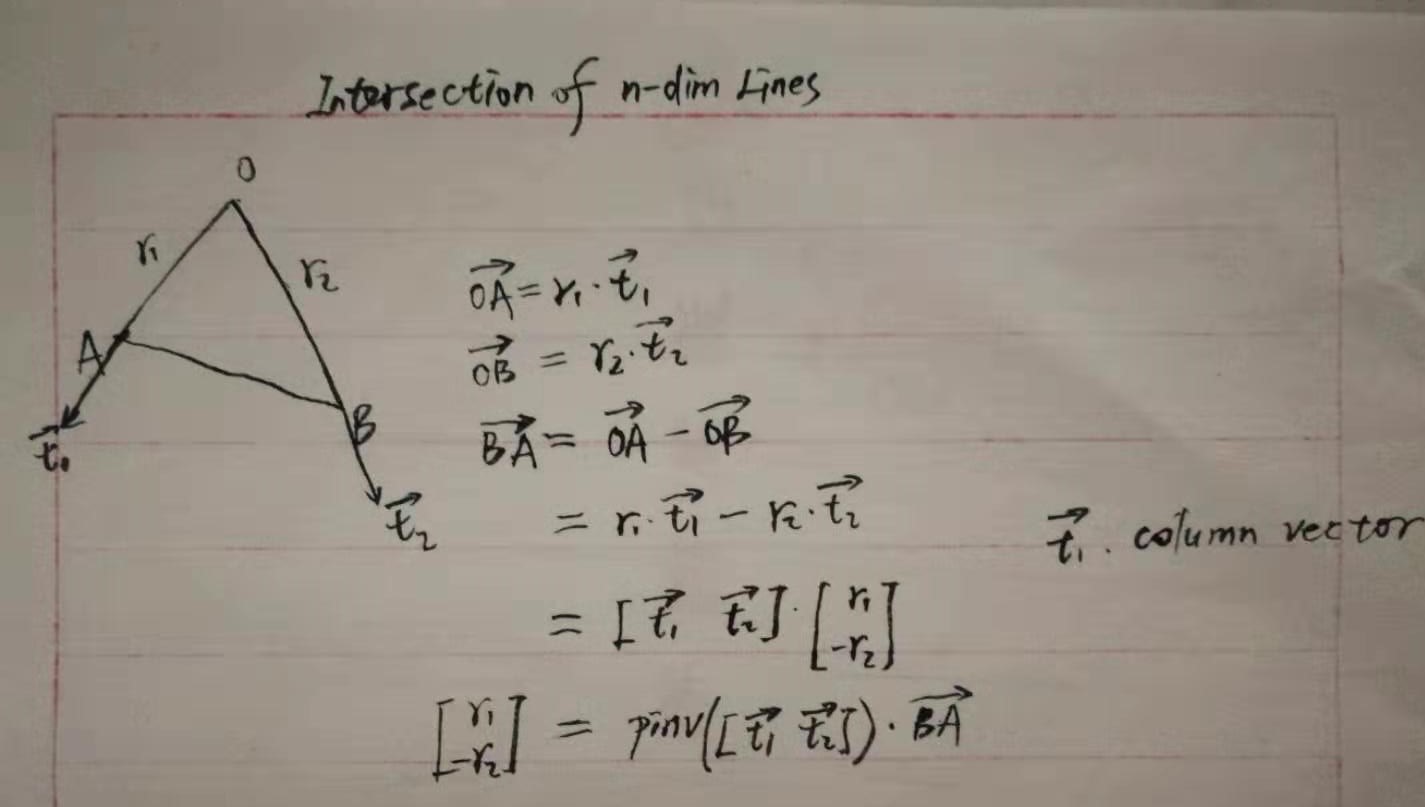 Intersection of n-dim Lines
O
r₁
r₂
A
B
t⃗₁
t⃗₂
OA⃗ = r₁·t⃗₁
OB⃗ = r₂·t⃗₂
BA⃗ = OA⃗ - OB⃗
= r₁·t⃗₁ - r₂·t⃗₂
t⃗₁. column vector
= [t⃗₁ t⃗₂]·[r₁ -r₂]
[r₁ -r₂] = pinv([t⃗₁ t⃗₂])·BA⃗